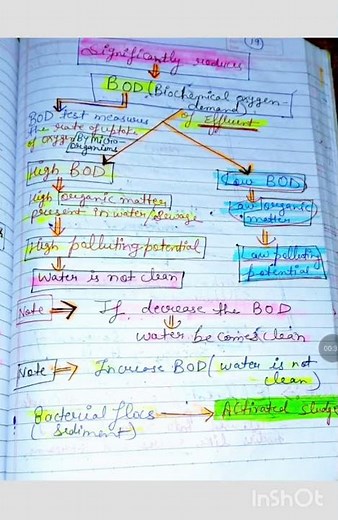 (19)
Significantly reduces
BOD (Biochemical oxygen-
demand)
of Effluent
BOD test measures
the rate of uptake
of oxygen By micro-
organisms
High BOD
High organic matter
present in water/sewage.
High polluting potential
Water is not clean
Low BOD
Law organic
matter
Law polluting
potential
Note If decrease the BOD
water becomes clean
Note Increase BOD (water is not
clean)
Bacterial flocs Activated sludge
(Sediment)
InShOt